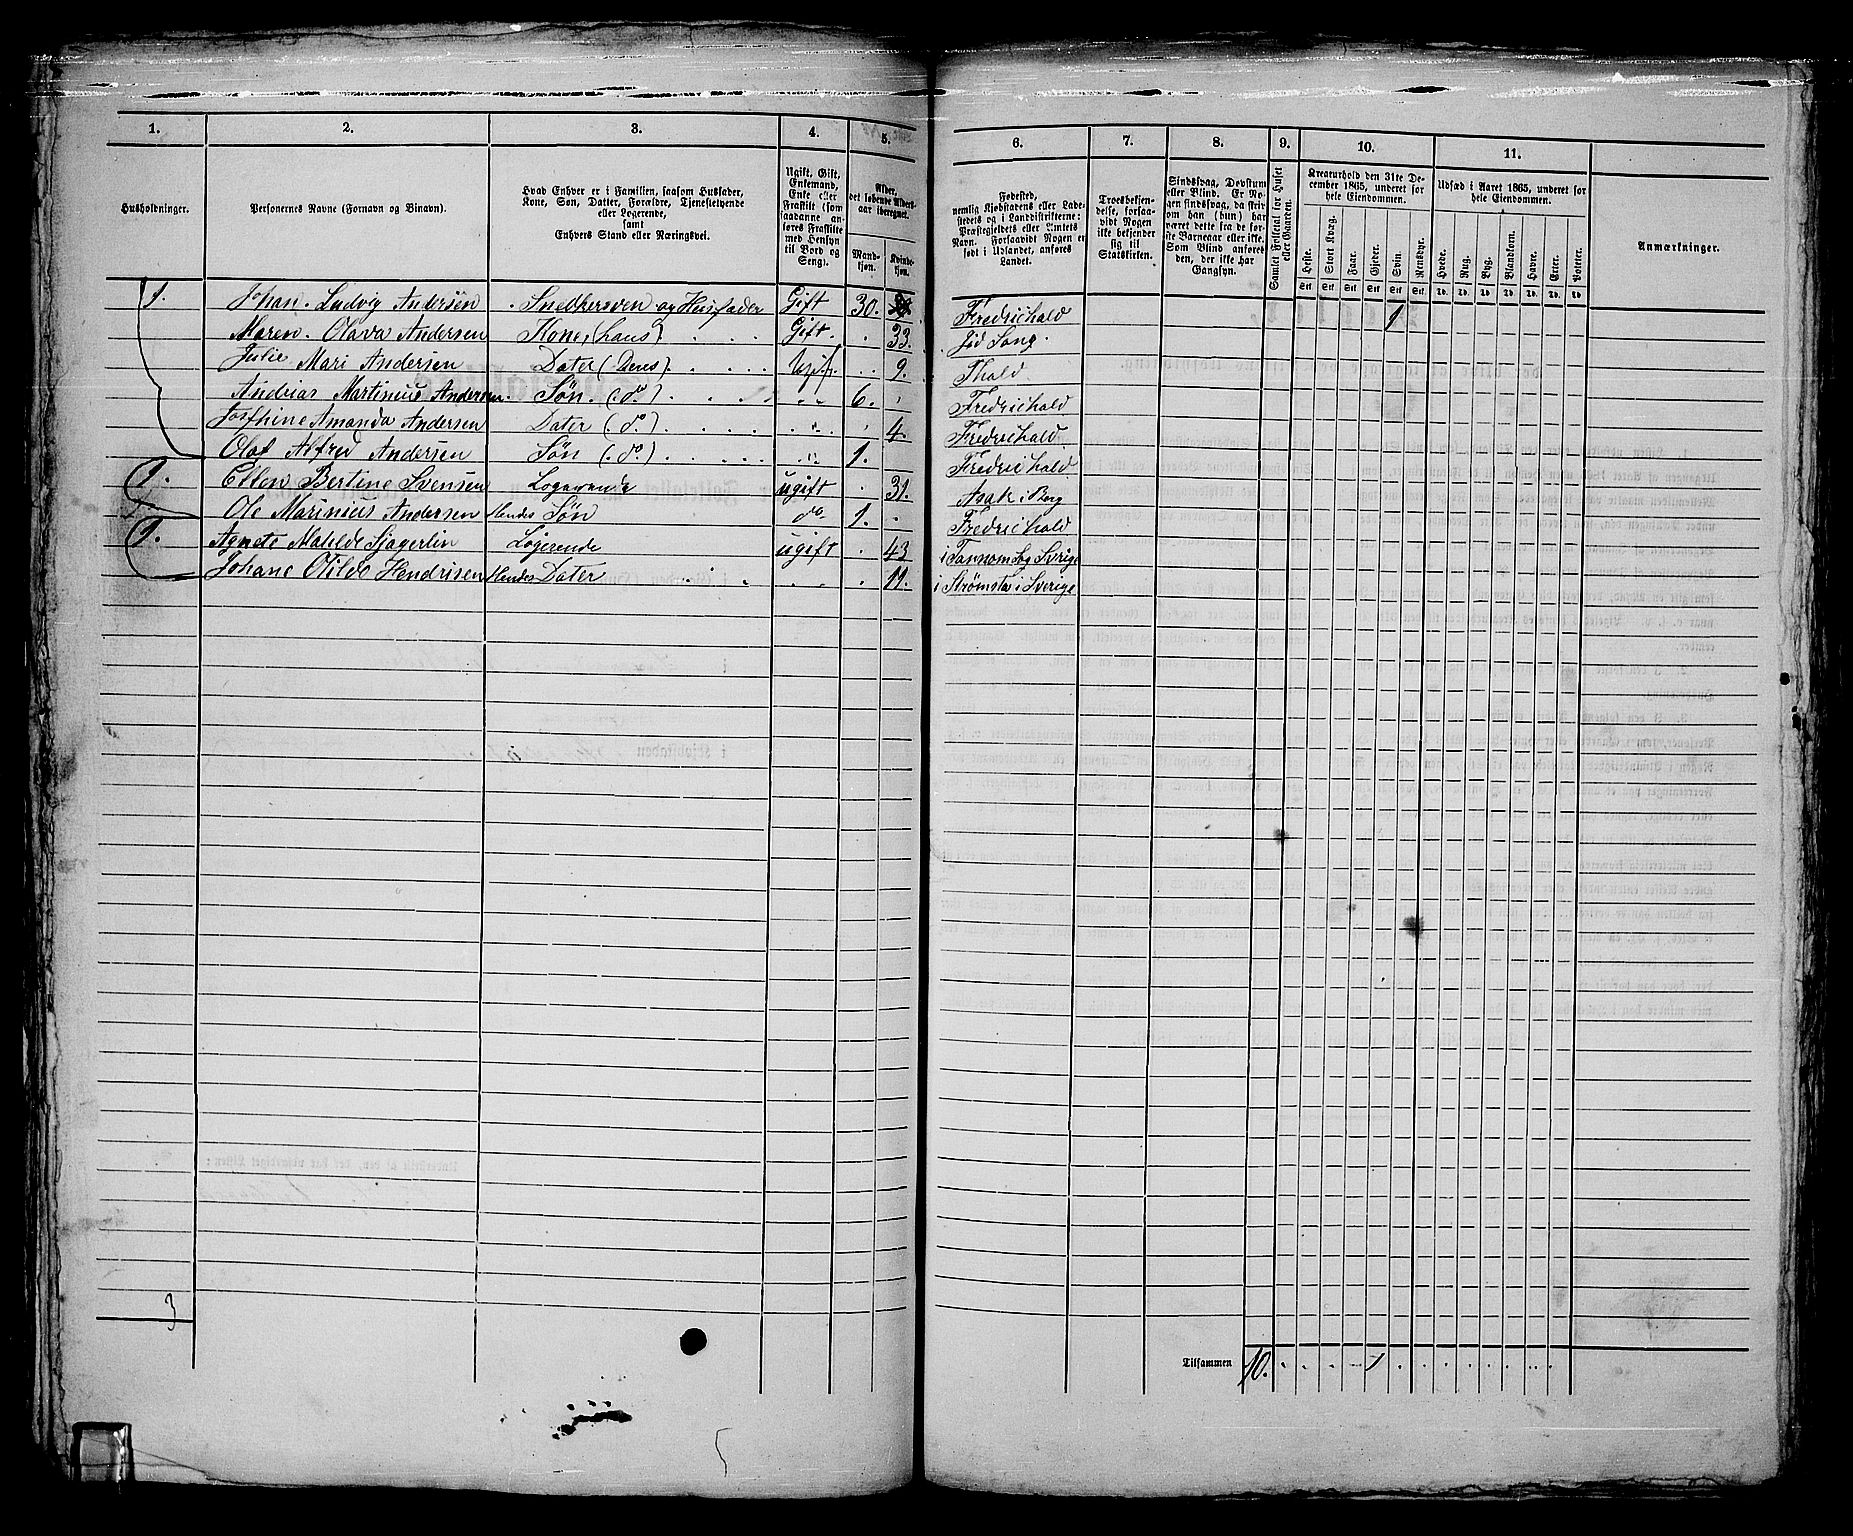 1. 2. 3. 4. 5. 6. 7. 8. 9. 10. 11.
Husholdninger.
Personernes Navne (Fornavn og Binavn).
Hvad Enhver er i Familien, saasom Husfader, Kone, Søn, Datter, Forældre, Tjenestetyende eller Logerende, samt Enhvers Stand eller Næringsvei.
Ugift, Gift, Enkemand, Enke eller Fraskilt (som saadanne anføres Fraskilte med Hensyn til Bord og Seng).
Alder, det løbende Aldersaar iberegnet.
Mandkjøn. Kvindekjøn.
Fødested, nemlig Kjøbstadens eller Ladestedets og i Landdistrikterne: Præstegjeldets eller Amtets Navn. Forsaavidt Nogen er født i Udlandet, anføres Landet.
Troesbekjendelse, forsaavidt Nogen ikke bekjender sig til Statskirken.
Sindssvag, Døvstum eller Blind. Er Nogen sindssvag, da skrives om han (hun) har været dette fra de første Barneaar eller ikke. Som Blind anføres den, der ikke har Gangsyn.
Samlet Folketal for Huset eller Gaarden.
Kreaturhold den 31te December 1865, underet for hele Eiendommen.
Heste. Stort Kvæg. Faar. Gjeder. Svin. Rensdyr.
Udsæd i Aaret 1865, underet for hele Eiendommen.
Hvede. Rug. Byg. Blandkorn. Havre. Erter. Poteter.
Anmærkninger.
Stk Stk Stk Stk Stk Stk Td. Td. Td. Td. Td. Td. Td.
1. Johan Ludvig Andersen Snedkersven og Husfader Gift 30. Fredrichald 1
Maren Olava Andersen Kone (hans) Gift 33. Id Song.
Julie Mari Andersen Dater (Deres) Ugift 9. Fhald
Andrias Martinius Andersen Søn (do) " 6. Fredrichald
Josephine Amanda Andersen Dater (do) " 4. Fredrichald
Olaf Alfred Andersen Søn (do) " 1. Fredrichald
1. Ellen Bertine Svensen Logerende ugift 31. Asak i Berg
Ole Marinius Andersen Hendes Søn do 1. Fredrichald
1. Agnete Matilde Sjagerlin Logerende ugift 43 i Tannom Sog Sverige
Johane Otilde Hendrisen Hendes Dater " 11. i Strømsta i Sverige
3
Tilsammen 10. 1